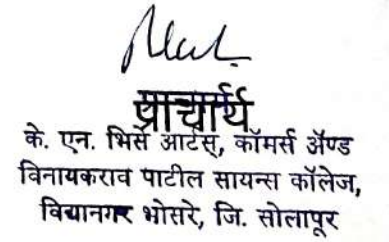 प्राचार्य
के. एन. भिसे आर्टस्, कॉमर्स ॲण्ड
विनायकराव पाटील सायन्स कॉलेज,
विद्यानगर भोसरे, जि. सोलापूर